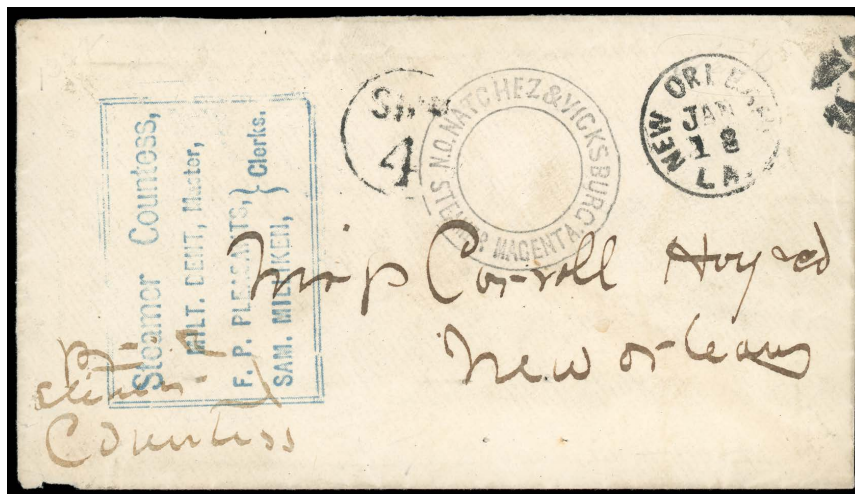 Steamer Countess,
MILT. DENT, Master,
F. P. PLEASANTS,
SAM. MILLIKEN,
} Clerks.
4
N.O. NATCHEZ & VICKSBURG
STEAMER MAGENTA.
NEW ORLEANS
JAN
18
LA.
Miss Carroll
New Orleans
Countess